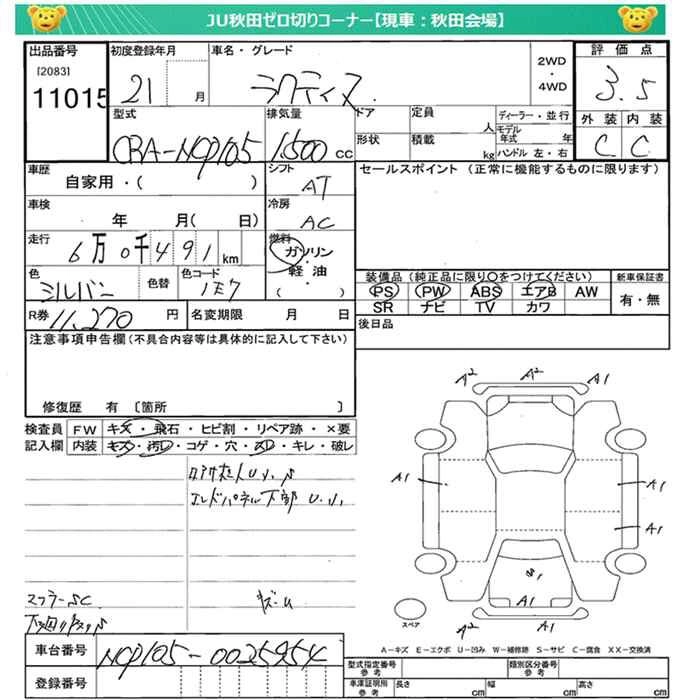 JU秋田ゼロ切りコーナー【現車：秋田会場】
出品番号 初度登録年月 車名・グレード 評価点
[2083]
11015 21 月 ラクティス 2WD・4WD 3.5
型式 排気量 ドア 定員 人 ディーラー・並行 外装 内装
CBA-NCP105 1500 cc 形状 積載 kg モデル年式 年 ハンドル 左・右 C C
車歴 シフト セールスポイント（正常に機能するものに限ります）
自家用・( ) AT
車検 冷房
年 月( 日) AC
走行 燃料
6万0千491km ガソリン・軽油
( )
色 色替 色コード 装備品（純正品に限り○をつけてください） 新車保証書
シルバー 1E7 PS PW ABS エアB AW 有・無
SR ナビ TV カワ
R券 11,270 円 名変期限 月 日 後日品
注意事項申告欄（不具合内容等は具体的に記入して下さい）
修復歴 有 〔箇所 〕
検査員 FW キズ・飛石・ヒビ割・リペア跡・×要
記入欄 内装 キズ・汚レ・コゲ・穴・スレ・キレ・破レ
エンドパネル下部 U、
マフラーSC
A2 A2 A1
A1 A1
A1
A2 A1 A1
スペア
A－キズ E－エクボ U－凹み W－補修跡 S－サビ C－腐食 XX－交換済
車台番号 NCP105-0025954 型式指定番号 参考 類別区分番号 参考
登録番号 車庫証明所 参考 長さ cm 幅 cm 高さ cm